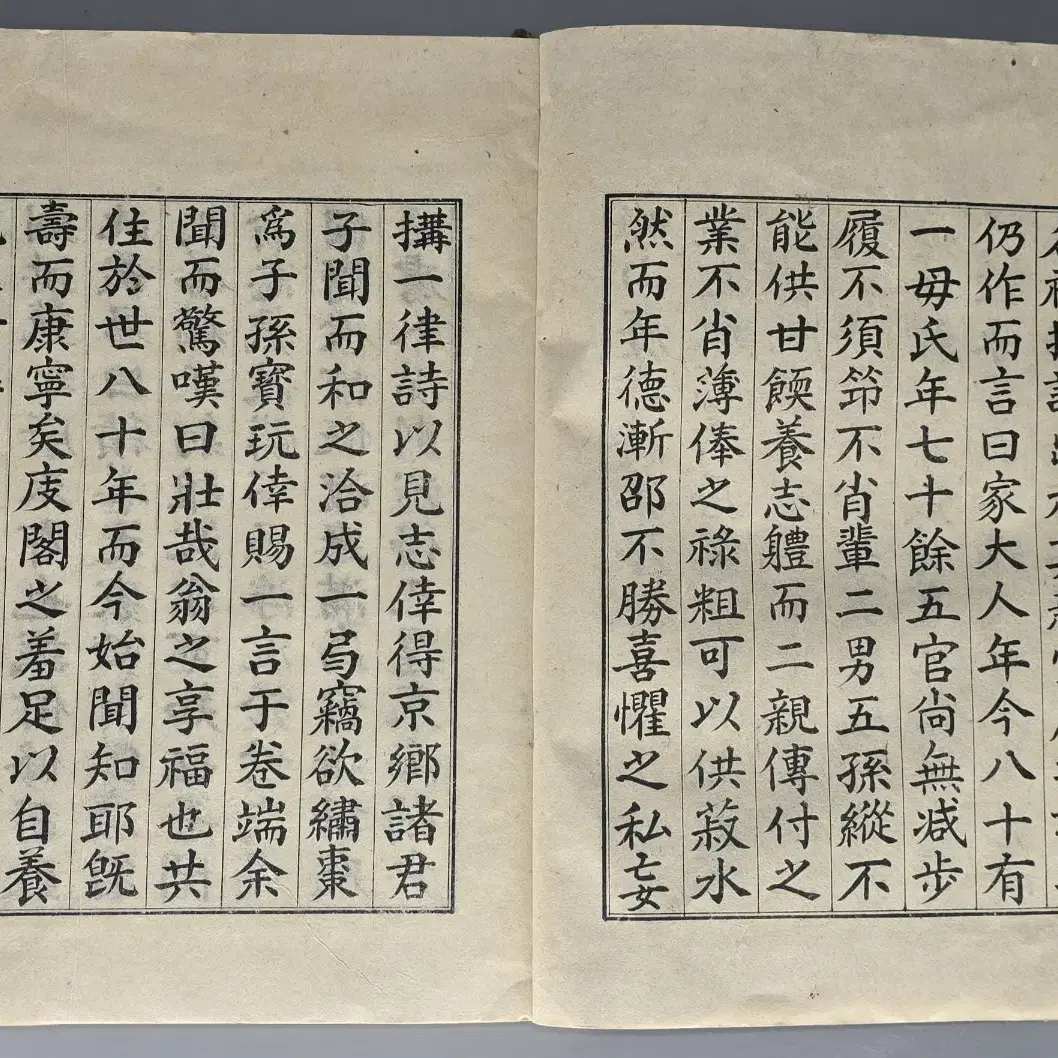 仍作而言曰家大人年今八十有
一毋氏年七十餘五官尙無减步
履不須笻不肖輩二男五孫縱不
能供甘餪養志軆而二親傳付之
業不肖薄俸之祿粗可以供菽水
然而年德漸邵不勝喜懼之私妄
搆一律詩以見志倖得京鄕諸君
子聞而和之洽成一弓竊欲繡棗
爲子孫寶玩倖賜一言于卷端余
聞而驚嘆曰壯哉翁之享福也共
住於世八十年而今始聞知耶旣
壽而康寧矣庋閣之羞足以自養